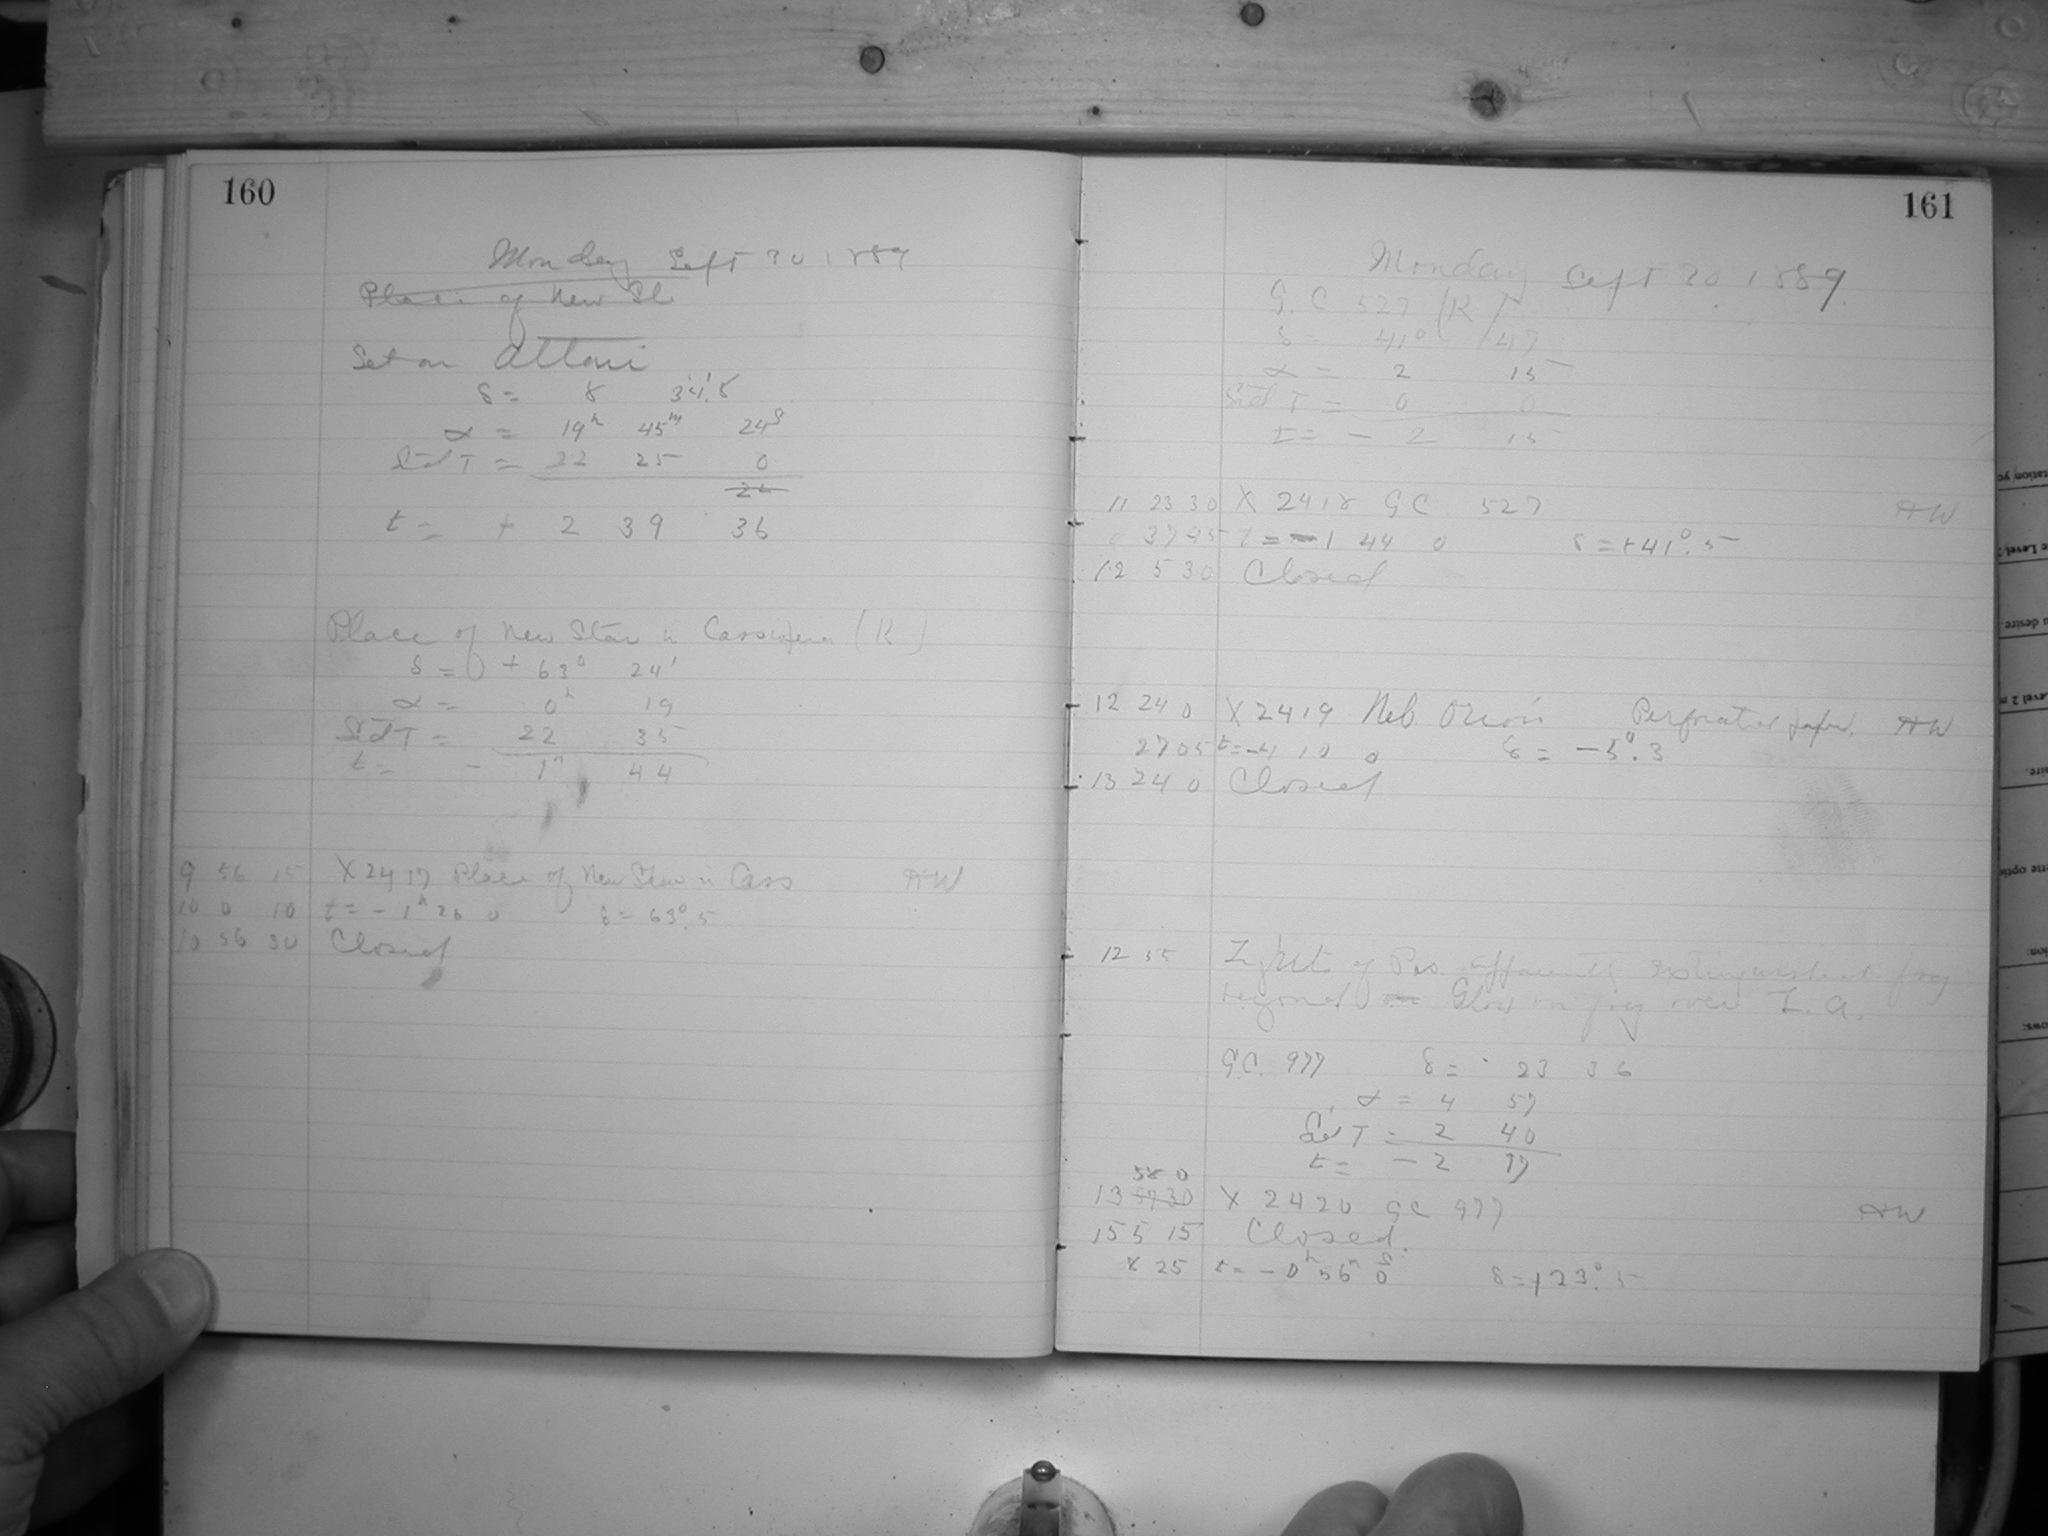 160
Monday Sept 30 1889
Place of New St
Set on Altair
δ = 8 34'.5
α = 19h 45m 24s
Sid T = 22 25 0
24
t = + 2 39 36
Place of New Star in Cassiopeia (K)
δ = + 63° 24'
α = 0h 19
Sid T = 22 35
t = - 1h 44
9 56 15 X 2417 Place of New Star in Cass HW
10 0 10 t = - 1h 26 0 δ = 63°.5
10 56 30 Closed
161
Monday Sept 30 1889.
G.C 527 (K)
δ = 41° 47
α = 2 15
Sid T = 0 0
t = - 2 15
11 23 30 X 2418 GC 527 HW
37 45 t = - 1 44 0 δ = +41°.5
12 5 30 Closed
12 24 0 X 2419 Neb. Orion HW
27 05 t = -4 10 0 δ = -5°.3
13 24 0 Closed
12 55 Lights of Pas. apparently extinguished fog
beyond Glow on fog over L.A.
G.C. 977 δ = 23 36
α = 4 57
Sid T = 2 40
t = - 2 17
58 0
13 57 30 X 2420 GC 977 HW
15 5 15 Closed.
8 25 t = - 0h 56m 0s δ = +23°.5